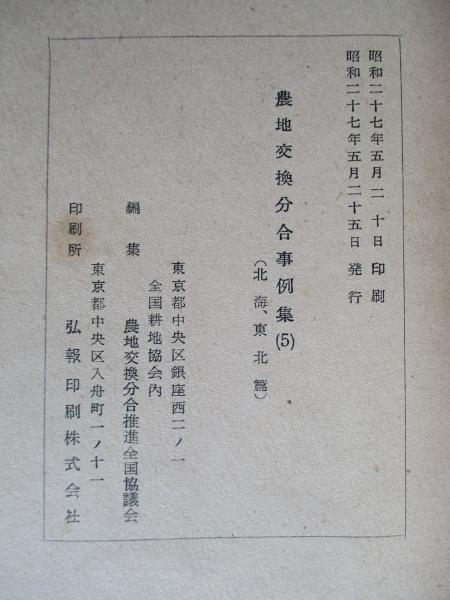 昭和二十七年五月二十日 印刷
昭和二十七年五月二十五日 発行
農地交換分合事例集(5)
(北海、東北篇)
東京都中央区銀座西二ノ一
全国耕地協会内
編集 農地交換分合推進全国協議会
東京都中央区入舟町一ノ十一
印刷所 弘報印刷株式会社